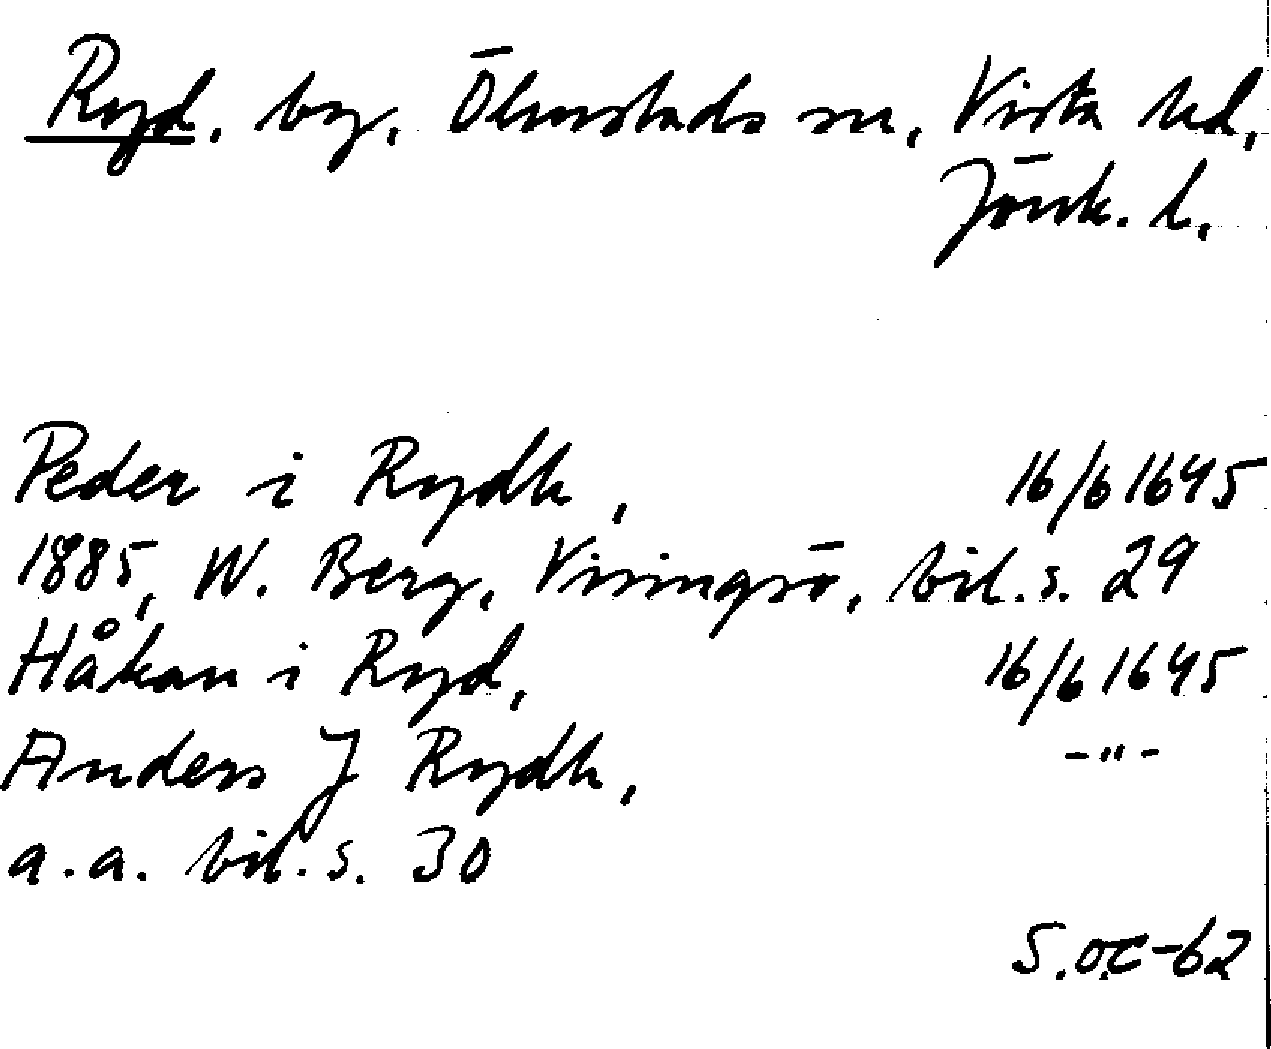 Ryd. by. Ölmstads sn, Vista hd,
Jönk. l.
Peder i Rydh, 16/6 1645
1885, W. Berg, Visingsö, bil. s. 29
Håkan i Ryd, 16/6 1645
Anders J Rydh, -"-
a.a. bil. s. 30
S.OC-62